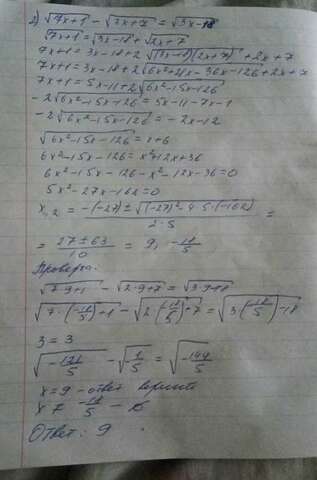 2) √7x+1 - √3x+7 = √3x-18
√7x+1 = √3x-18 + √2x+7
7x+1 = 3x-18+2√(3x-18)(2x+7) + 2x+7
7x+1 = 3x-18+2√6x²+21x-36x-126+2x+7
7x+1 = 5x-11+2√6x²-15x-126
-2√6x²-15x-126 = 5x-11-7x-1
-2√6x²-15x-126 = -2x-12
√6x²-15x-126 = x+6
6x²-15x-126 = x²+12x+36
6x²-15x-126-x²-12x-36=0
5x²-27x-162=0
x₁,₂ = -(-27)±√(-27)²-4·5·(-162) / 2·5 =
= 27±63 / 10 = 9, -18/5
Проверка:
√7·9+1 - √2·9+7 = √3·9-18
√7·(-18/5)+1 - √2(-18/5)+7 = √3(-18/5)-18
3 = 3
√-121/5 - √-1/5 = √-144/5
x=9 - ответ верный
x ≠ -18/5 -
Ответ: 9